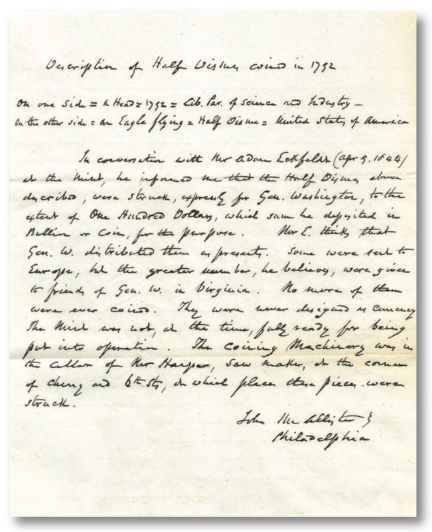 Description of Half Dismes coined in 1792
On one side = a Head = 1792 = Lib. Par. of Science and Industry —
On the other side = an Eagle flying = Half Disme = United States of America
In conversation with Mr Adam Eckfeldt (Apr 9. 1844)
at the Mint, he informed me that the Half Dismes above
described, were struck, expressly for Gen. Washington, to the
extent of One Hundred Dollars, which sum he deposited in
Bullion or Coin, for the purpose. Mr E. thinks that
Gen. W. distributed them as presents. Some were sent to
Europe, but the greater number, he believes, were given
to friends of Gen. W. in Virginia. No more of them
were ever coined. They were never designed as currency
The Mint was not, at the time, fully ready for being
put into operation. The Coining Machinery was in
the cellar of Mr Harper, saw maker, at the corner
of Cherry and 6th Sts, at which place these pieces were
struck.
John McAllister
Philadelphia